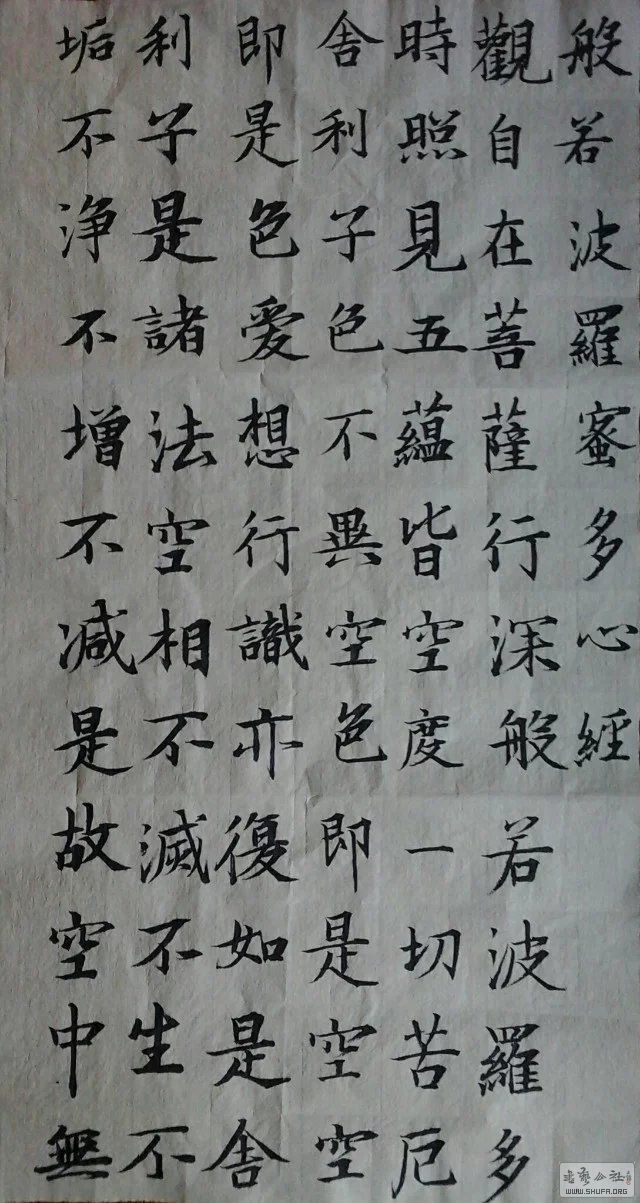 般若波羅蜜多心經
觀自在菩薩行深般若波羅多
時照見五蘊皆空度一切苦厄
舍利子色不異空色即是空空
即是色愛想行識亦復如是舍
利子是諸法空相不滅不生不
垢不淨不增不減是故空中無
WWW.SHUFA.ORG